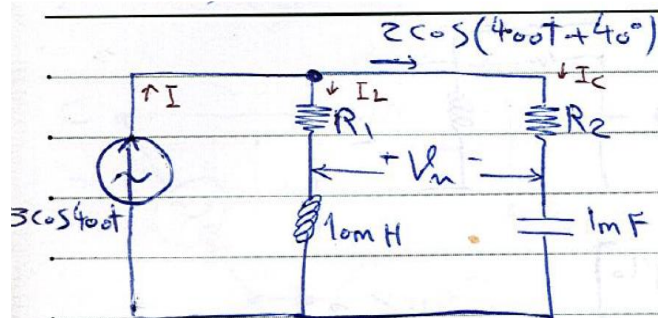 2cos(400t+40°)
↑I
↓IL
↓Ic
R1
R2
+ Vn -
3cos400t
10mH
1mF